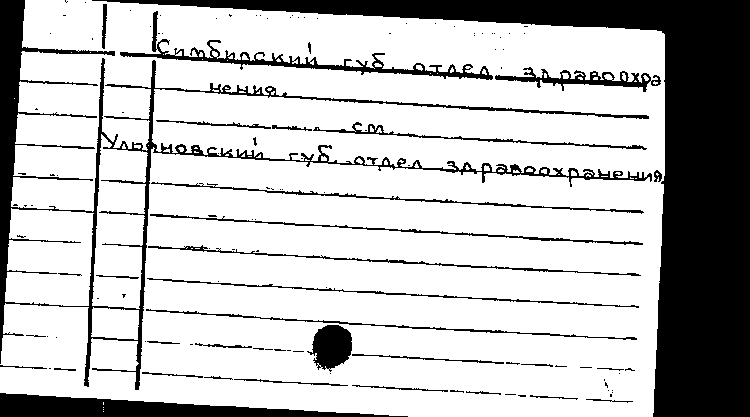 Симбирский губ. отдел здравоохра-
нения.
см.
Ульяновский губ. отдел здравоохранения.